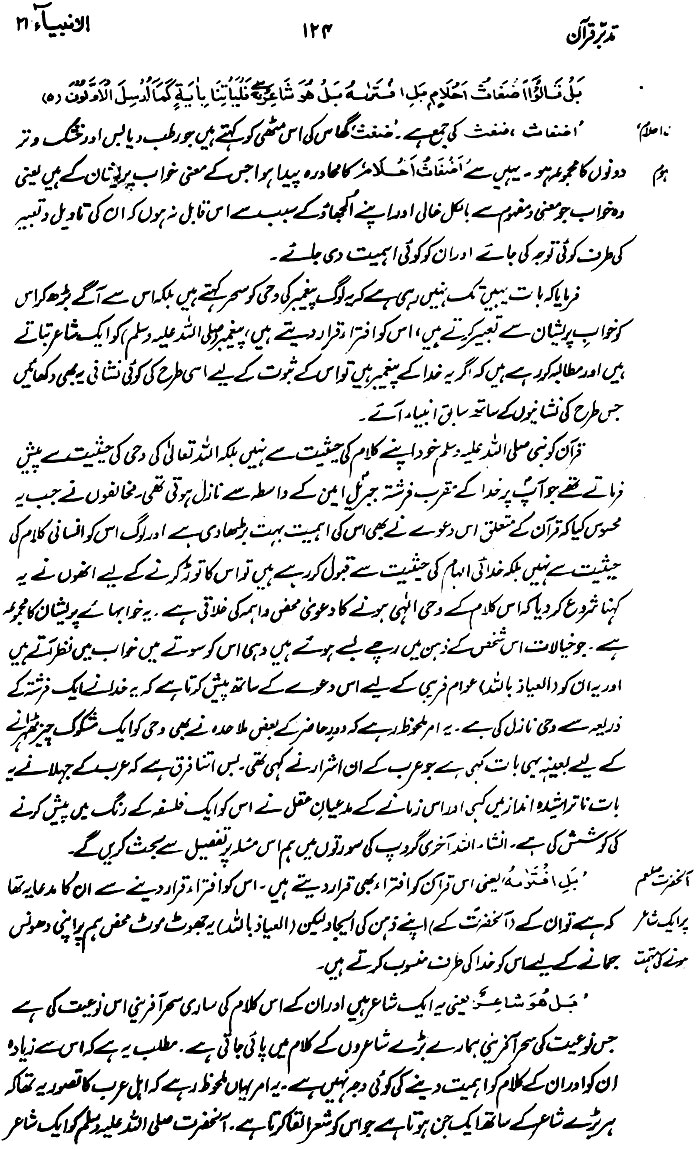 تدبرِ قرآن ۱۲۴ الانبیاء ۲۱
بَلْ قَالُوْٓا اَضْغَاثُ اَحْلَامٍ بَلِ افْتَرٰىهُ بَلْ هُوَ شَاعِرٌ ۚ فَلْيَاْتِنَا بِاٰيَةٍ كَمَآ اُرْسِلَ الْاَوَّلُوْنَ (۵)
’اضغاث‘، ضغث کی جمع ہے۔ ’ضغث‘ گھاس کی اس مٹھی کو کہتے ہیں جو رطب و یابس اور خشک و تر
دونوں کا مجموعہ ہو۔ یہیں سے ’اَضْغَاثُ اَحْلَامٍ‘ کا محاورہ پیدا ہوا جس کے معنی خواب پریشان کے ہیں یعنی
وہ خواب جو معنی و مفہوم سے بالکل خالی اور اپنے الجھاؤ کے سبب سے اس قابل نہ ہوں کہ ان کی تاویل و تعبیر
کی طرف کوئی توجہ کی جائے اور ان کو کوئی اہمیت دی جائے۔
فرمایا کہ بات یہیں تک نہیں رہی ہے کہ یہ لوگ پیغمبر کی وحی کو سحر کہتے ہیں بلکہ اس سے آگے بڑھ کر اس
کو خوابِ پریشان سے تعبیر کرتے ہیں، اس کو افتراء قرار دیتے ہیں، پیغمبر (صلی اللہ علیہ وسلم) کو ایک شاعر بتاتے
ہیں اور مطالبہ کر رہے ہیں کہ اگر یہ خدا کے پیغمبر ہیں تو اس کے ثبوت کے لیے اسی طرح کی کوئی نشانی یہ بھی دکھائیں
جس طرح کی نشانیوں کے ساتھ سابق انبیاء آئے۔
قرآن کو نبی صلی اللہ علیہ وسلم خود اپنے کلام کی حیثیت سے نہیں بلکہ اللہ تعالیٰ کی وحی کی حیثیت سے پیش
فرماتے تھے جو آپؐ پر خدا کے مقرب فرشتہ جبریلِ امین کے واسطہ سے نازل ہوتی تھی۔ مخالفوں نے جب یہ
محسوس کیا کہ قرآن کے متعلق اس دعوے نے بھی اس کی اہمیت بہت بڑھا دی ہے اور لوگ اس کو انسانی کلام کی
حیثیت سے نہیں بلکہ خدائی الہام کی حیثیت سے قبول کر رہے ہیں تو اس کا توڑ کرنے کے لیے انھوں نے یہ
کہنا شروع کر دیا کہ اس کلام کے وحی الٰہی ہونے کا دعویٰ محض واہمہ کی خلاقی ہے۔ یہ خوابہائے پریشان کا مجموعہ
ہے۔ جو خیالات اس شخص کے ذہن میں رچے بسے ہوئے ہیں وہی اس کو سوتے میں خواب میں نظر آتے ہیں
اور یہ ان کو (العیاذ باللہ) عوام فریبی کے لیے اس دعوے کے ساتھ پیش کرتا ہے کہ یہ خدا نے ایک فرشتہ کے
ذریعہ سے وحی نازل کی ہے۔ یہ امر ملحوظ رہے کہ دورِ حاضر کے بعض ملاحدہ نے بھی وحی کو ایک مشکوک چیز ٹھہرانے
کے لیے بعینہٖ یہی بات کہی ہے جو عرب کے ان اشرار نے کہی تھی۔ بس اتنا فرق ہے کہ عرب کے جہلا نے یہ
بات ناتراشیدہ انداز میں کہی اور اس زمانے کے مدعیانِ عقل نے اس کو ایک فلسفہ کے رنگ میں پیش کرنے
کی کوشش کی ہے۔ انشاء اللہ آخری گروپ کی سورتوں میں ہم اس مسئلہ پر تفصیل سے بحث کریں گے۔
’بَلِ افْتَرٰىهُ‘ یعنی اس قرآن کو افتراء بھی قرار دیتے ہیں۔ اس کو افتراء قرار دینے سے ان کا مدعا یہ تھا
کہ ہے تو ان کے (آنحضرتؐ کے) اپنے ذہن کی ایجاد لیکن (العیاذ باللہ) یہ جھوٹ موٹ محض ہم پر اپنی دھونس
جمانے کے لیے اس کو خدا کی طرف منسوب کرتے ہیں۔
’بَلْ هُوَ شَاعِرٌ‘ یعنی یہ ایک شاعر ہیں اور ان کے اس کلام کی ساری سحر آفرینی اس نوعیت کی ہے
جس نوعیت کی سحر آفرینی ہمارے بڑے شاعروں کے کلام میں پائی جاتی ہے۔ مطلب یہ ہے کہ اس سے زیادہ
ان کو اور ان کے کلام کو اہمیت دینے کی کوئی وجہ نہیں ہے۔ یہ امر یہاں ملحوظ رہے کہ اہلِ عرب کا تصور یہ تھا کہ
ہر بڑے شاعر کے ساتھ ایک جن ہوتا ہے جو اس کو شعر القا کرتا ہے۔ آنحضرت صلی اللہ علیہ وسلم کو ایک شاعر
آنحضرت صلعم
پر ایک شاعر
ہونے کی تہمت